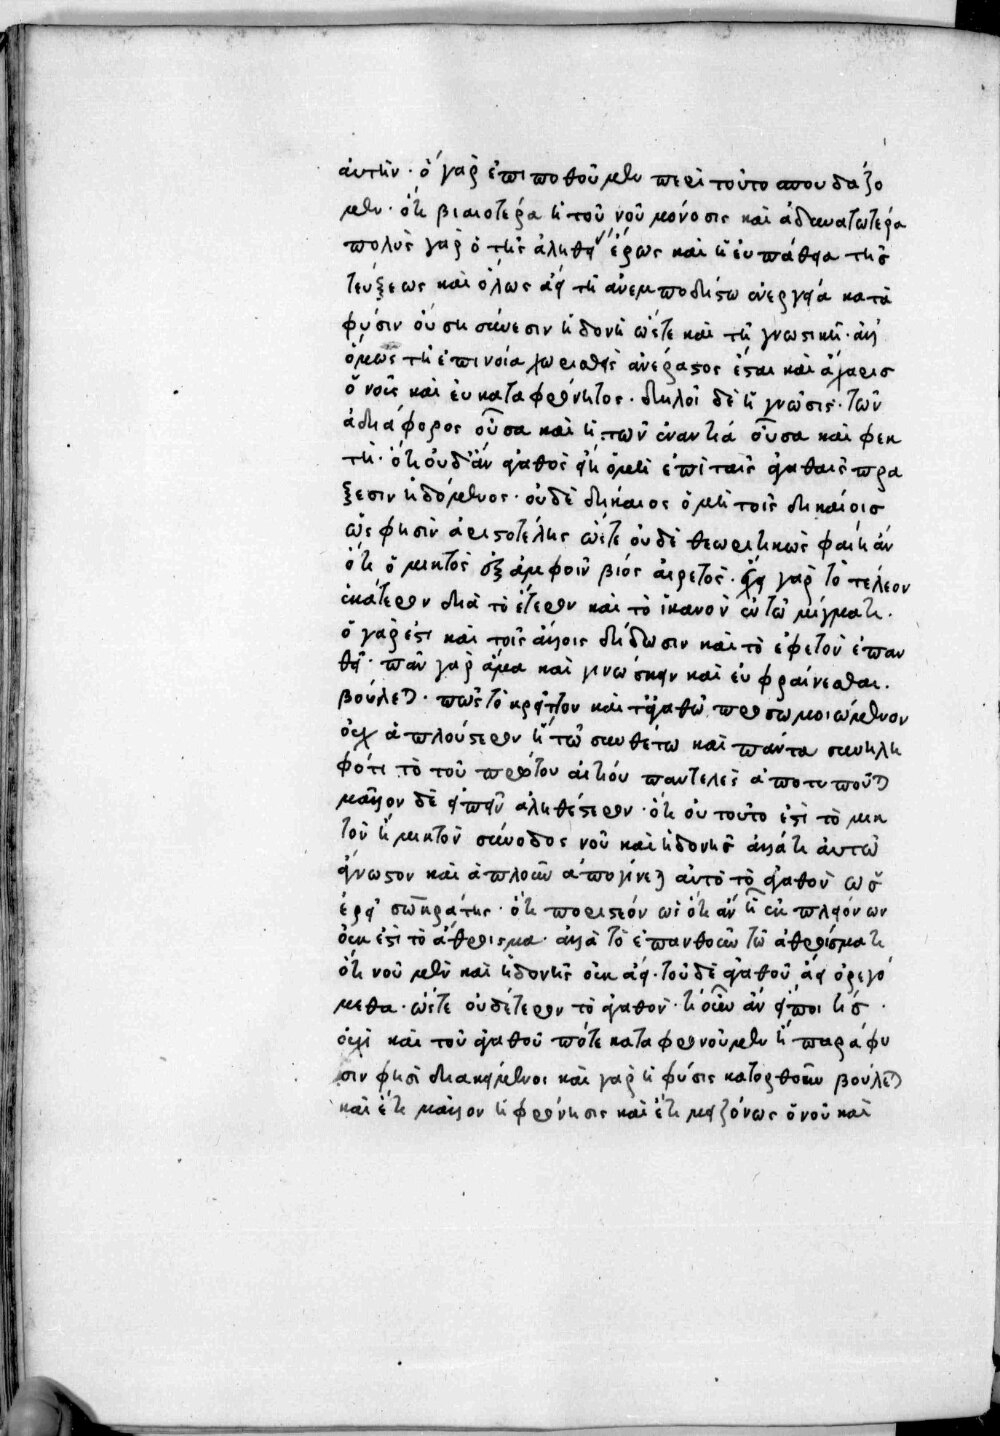 αὐτήν· ὃ γὰρ ἐπιποθοῦμεν περὶ τοῦτο σπουδάζο
μεν· ὅτι βιαιοτέρα ἡ τοῦ νοῦ μόνοσις καὶ ἀδυνατωτέρα
πολὺς γὰρ ὁ τῆς ἀληθεί ἔρως καὶ ἡ εὐπάθεια τῆς
τεύξεως καὶ ὅλως ἀεὶ τῇ ἀνεμποδήστω ἐνεργεία κατὰ
φύσιν οὔση σύνεσιν ἡδονὴ ὥστε καὶ τῇ γνωσικῇ· ἀλλ
ὅμως τῇ ἐπινοία χωρισθεὶς ἀνέραστος ἔσται καὶ ἄχαρισ
ὁ νοῦς καὶ εὐκαταφρόνητος· δηλοῖ δὲ ἡ γνῶσις· τῶν
ἀδιάφορος οὖσα καὶ ἡ τῶν ἐναντιά οὖσα καὶ φευ
τή· ὅτι οὐδ' ἂν ἀγαθὸς εἴη ὁ μὴ ἐπὶ ταῖς ἀγαθαῖς πρα
ξεσιν ἡδόμενος· οὐδὲ δίκαιος ὁ μὴ τοῖς δικαίοις
ὥς φησιν ἀριστοτέλης ὥστε οὐδὲ θεωρητικῶς φαίη ἂν
ὅτι ὁ μικτὸς ἐξ ἀμφοῖν βίος αἱρετός· ἔχει γὰρ τὸ τέλεον
ἑκάτερον διὰ τὸ ἕτερον καὶ τὸ ἱκανὸν ἐν τῶ μίγματι·
ὅ γάρ ἐστι καὶ τοῖς ἄλλοις δίδωσιν καὶ τὸ ἐφετὸν ἐπαν
θεῖ· πᾶν γὰρ ἅμα καὶ γινώσκειν καὶ εὐφραίνεσθαι·
βούλεται· πῶς τὸ κρεῖττον καὶ τἀγαθῶ προσωμοιώμενον
οὐχ ἁπλούστερον ἢ τῶ συνθέτω καὶ πάντα συνηλη
φότι τὸ τοῦ πρώτου αἰτίου παντελὲς ἀποτυποῦται
μᾶλλον δὲ εἰπεῖν ἀληθέστερον· ὅτι οὐ τοῦτο ἐστὶ τὸ μικ
τὸν ἡ μικτὸν σύνοδος νοῦ καὶ ἡδονῆς ἀλλά τι αὐτῶ
ἄγνωστον καὶ ἁπλοῦν ἀπογίνεται αὐτὸ τὸ ἀγαθὸν ὡσ
ἐρεῖ σωκράτης· ὅτι ποριστέον ὡς ὅτι ἂν ᾖ ἐκ πλειόνων
οὐκ ἔστι τὸ ἄθροισμα· ἀλλὰ τὸ ἐπανθοῦν τῶ ἀθροίσματι
ὅτι νοῦ μὲν καὶ ἡδονῆς οὐκ ἀεί· τοῦ δὲ ἀγαθοῦ ἀεὶ ὀρεγό
μεθα· ὥστε οὐδέτερον τὸ ἀγαθόν· τί οὖν ἂν εἴποι τίς·
οὐχὶ καὶ τοῦ ἀγαθοῦ πότε καταφρονοῦμεν ἢ παρὰ φύ
σιν φησὶ διακείμενοι καὶ γὰρ ἡ φύσις κατορθοῦν βούλεται
καὶ ἔτι μᾶλλον ἡ φρόνησις καὶ ἔτι μειζόνως ὁ νοῦ καὶ